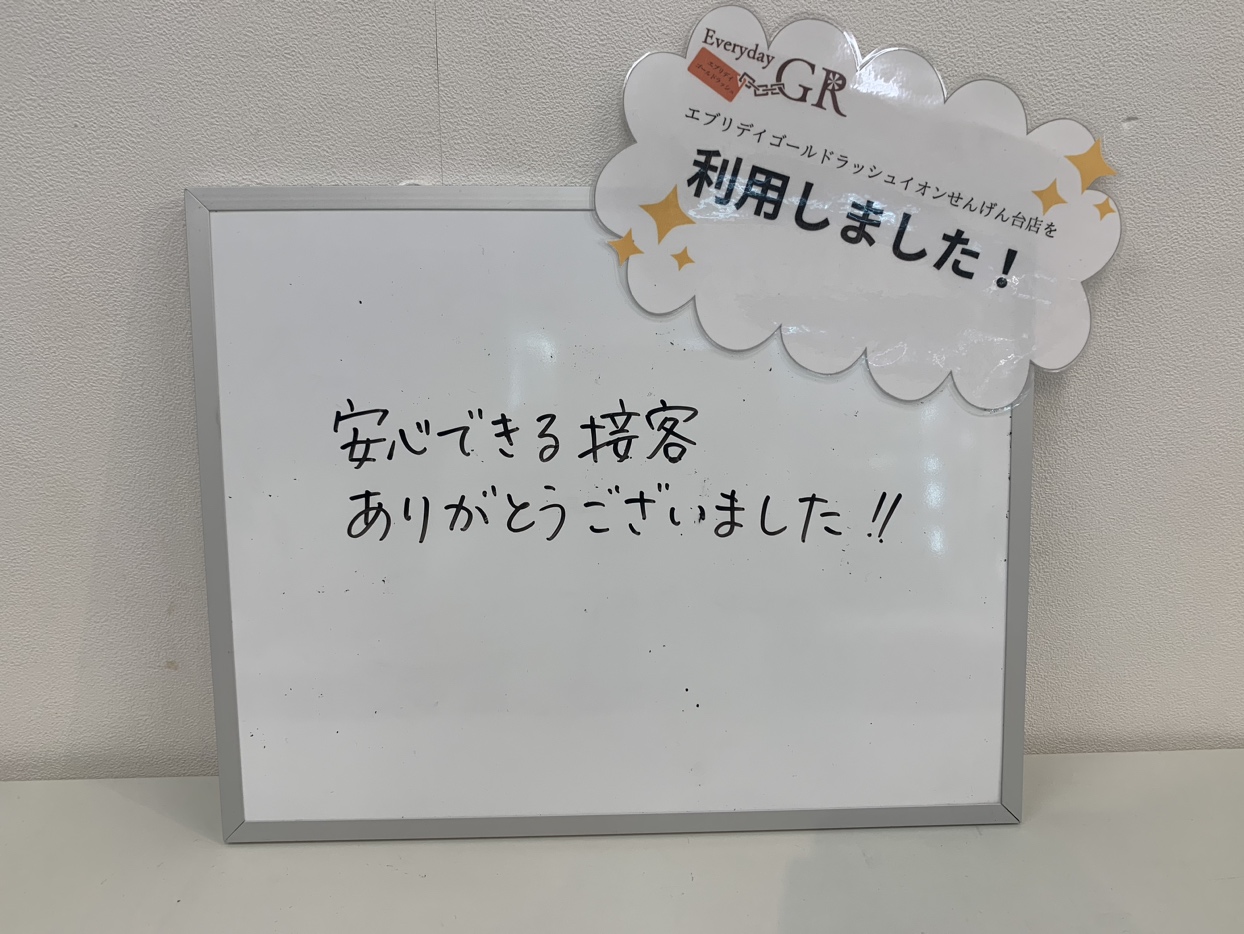 Everyday
GR
エブリデイ
ゴールドラッシュ
エブリデイゴールドラッシュイオンせんげん台店を
利用しました！
安心できる接客
ありがとうございました!!